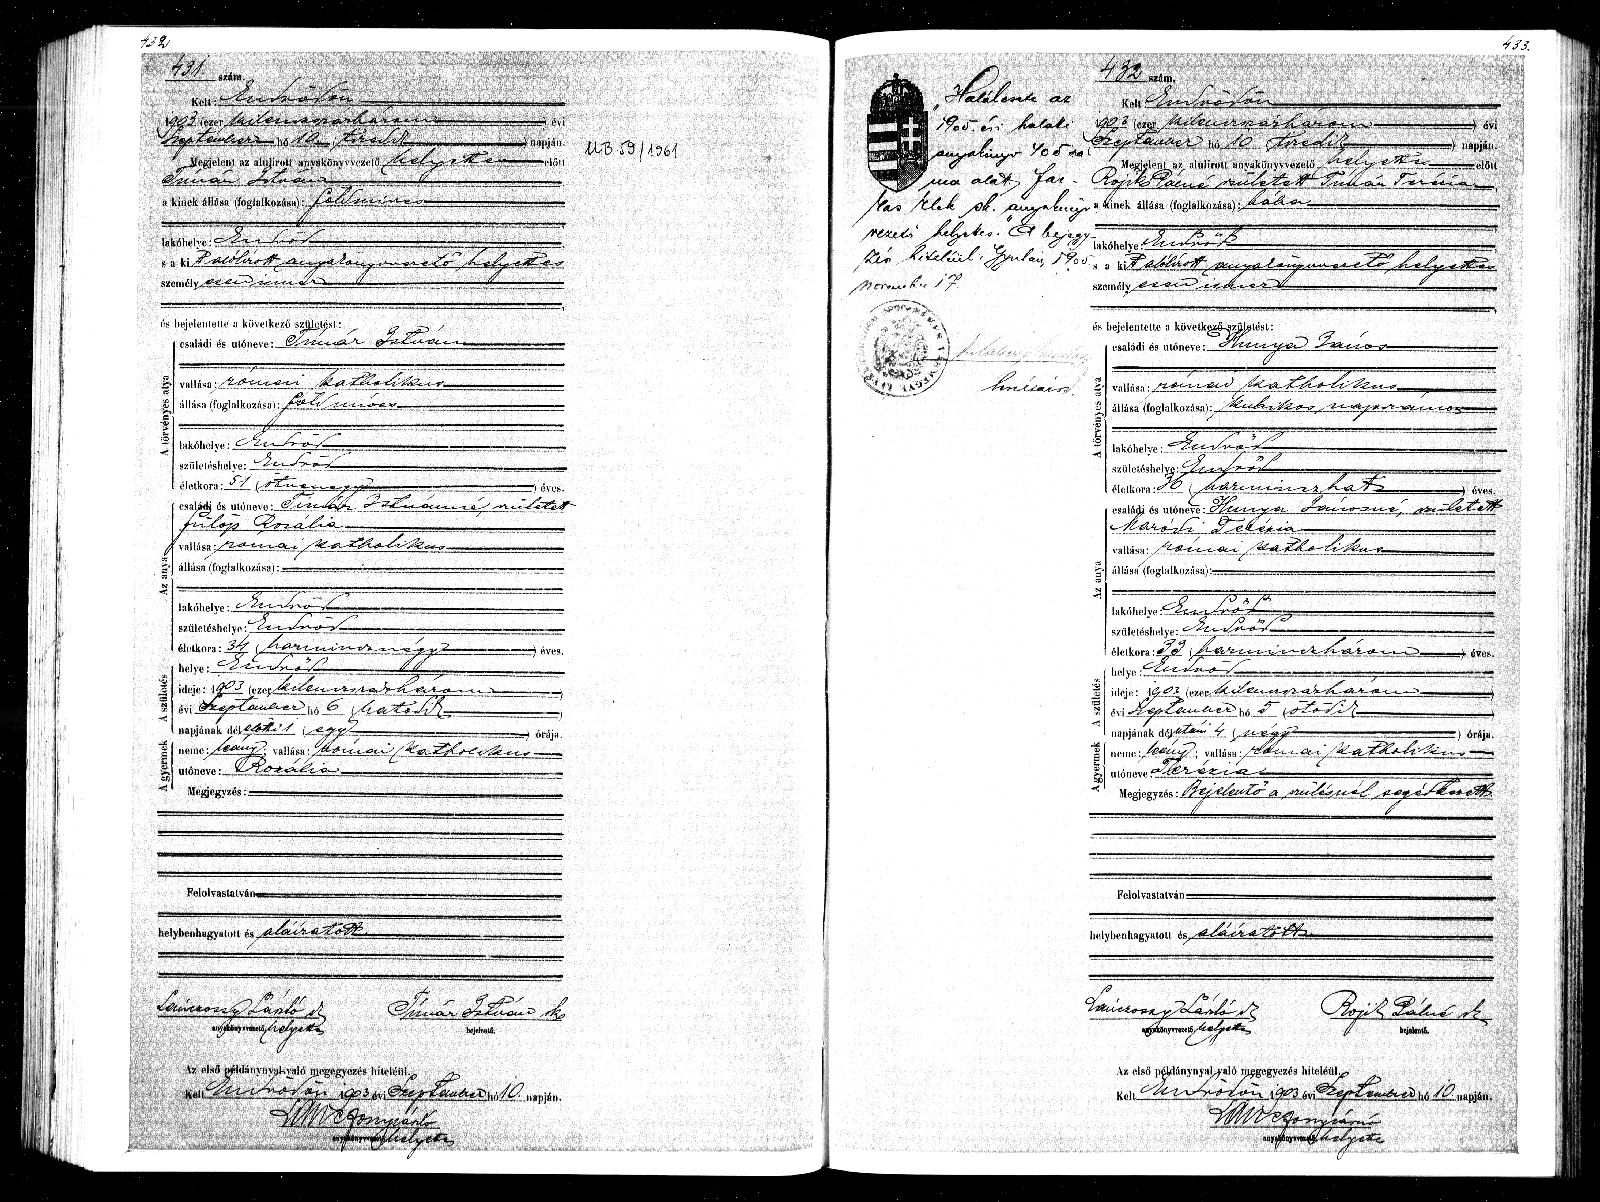 432
431 szám.
Kelt: Endrődön
1903 (ezer kilenczszázhárom) évi
Szeptember hó 10 (tizedik) napján.
Megjelent az alulirott anyakönyvvezető helyettes előtt
Timár István
a kinek állása (foglalkozása): földmives
lakóhelye: Endrőd
s a kit alólirott anyakönyvvezető helyettes
személyesen ismer
és bejelentette a következő születést:
A törvényes atya
családi és utóneve: Timár István
vallása: római katholikus
állása (foglalkozása): földmives
lakóhelye: Endrőd
születéshelye: Endrőd
életkora: 51 (ötvenegy) éves.
Az anya
családi és utóneve: Timár Istvánné született
Fülöp Rozália
vallása: római katholikus
állása (foglalkozása):
lakóhelye: Endrőd
születéshelye: Endrőd
életkora: 34 (harmincznégy) éves.
A születés
helye: Endrőd
ideje: 1903 (ezer kilenczszázhárom)
évi Szeptember hó 6 (hatodik)
napjának dél előtti 1 (egy) órája.
A gyermek
neme: leány; vallása: római katholikus
utóneve: Rozália
Megjegyzés:
Felolvastatván
helybenhagyatott és aláiratott
Lánczossy László sk Timár István sk
anyakönyvvezető helyettes bejelentő.
Az első példánynyal való megegyezés hiteléül.
Kelt Endrődön 1903 évi Szeptember hó 10. napján.
anyakönyvvezető helyettes
MB 59/1961
433.
"Halálesete az
1905. évi halotti
anyakönyv 405 szá
ma alatt. Far-
kas Elek sk. anyakönyv
vezető helyettes." A bejegy-
zés hiteléül. Gyulán, 1905
november 17.
432 szám.
Kelt Endrődön
1903 (ezer kilenczszázhárom) évi
Szeptember hó 10 (tizedik) napján.
Megjelent az alulirott anyakönyvvezető helyettes előtt
Rojik Pálné született Timár Terézia
a kinek állása (foglalkozása): bába
lakóhelye: Endrőd
s a kit alólirott anyakönyvvezető helyettes
személyesen ismer
és bejelentette a következő születést:
A törvényes atya
családi és utóneve: Hunya János
vallása: római katholikus
állása (foglalkozása): kubikos napszámos
lakóhelye: Endrőd
születéshelye: Endrőd
életkora: 36 (harminczhat) éves.
Az anya
családi és utóneve: Hunya Jánosné, született
Maródi Terézia
vallása: római katholikus
állása (foglalkozása):
lakóhelye: Endrőd
születéshelye: Endrőd
életkora: 33 (harminczhárom) éves.
A születés
helye: Endrőd
ideje: 1903 (ezer kilenczszázhárom)
évi Szeptember hó 5 (ötödik)
napjának dél után 4 (négy) órája.
A gyermek
neme: leány; vallása: római katholikus
utóneve: Terézia
Megjegyzés: Bejelentő a szülésnél segédkezett
Felolvastatván
helybenhagyatott és aláiratott
Lánczossy László sk Rojik Pálné sk
anyakönyvvezető helyettes bejelentő.
Az első példánynyal való megegyezés hiteléül.
Kelt Endrődön 1903 évi Szeptember hó 10 napján.
anyakönyvvezető helyettes